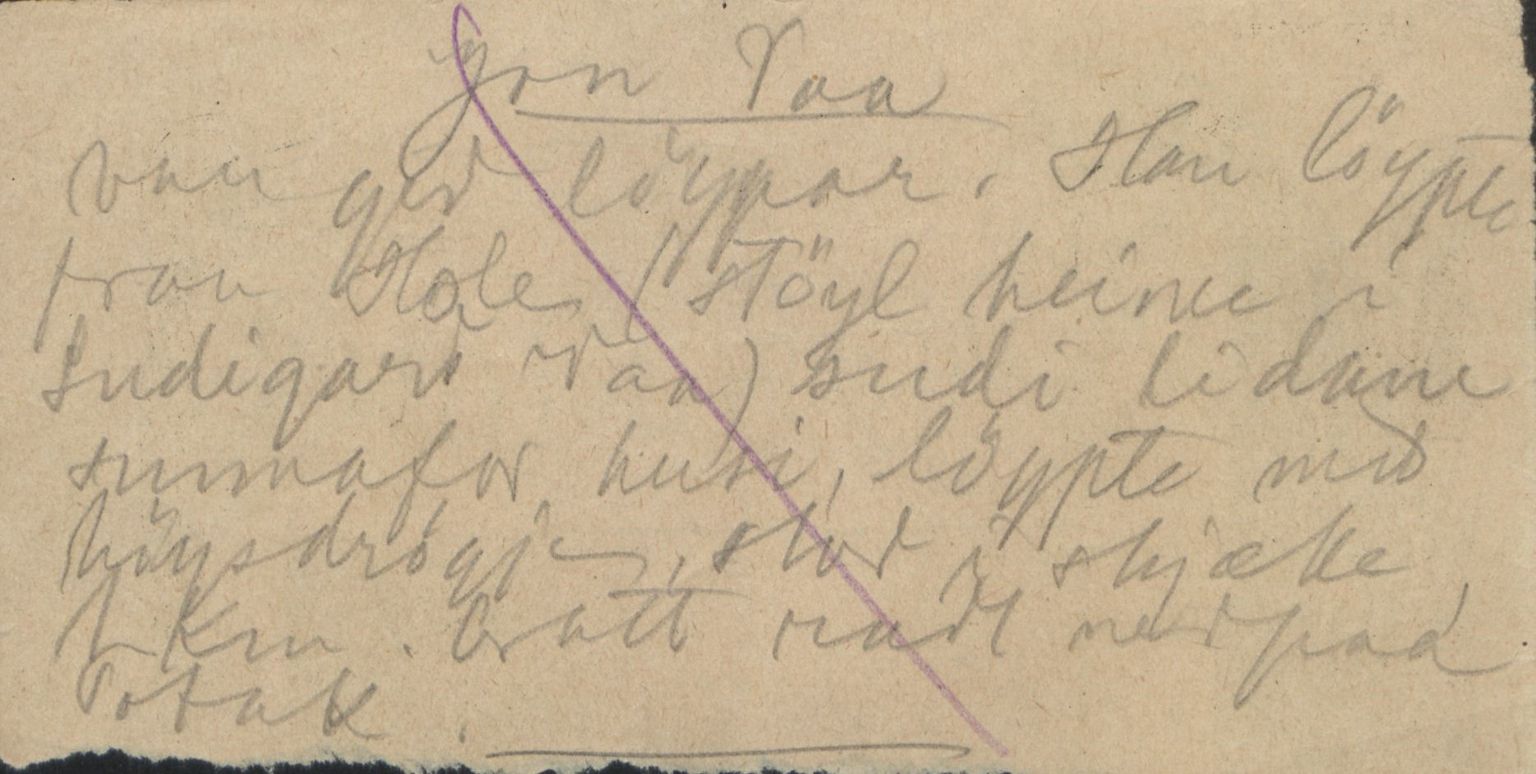 Jon Raa
van gjo löypar. Han löypte
fraa Hole (Stöyl heime i
Sudigard Raa) sudi lidane
sunnafor husi, löypte med
höysdrögje, stod i skjæke
1 Km. bratt radt nedpaa
Rotak.